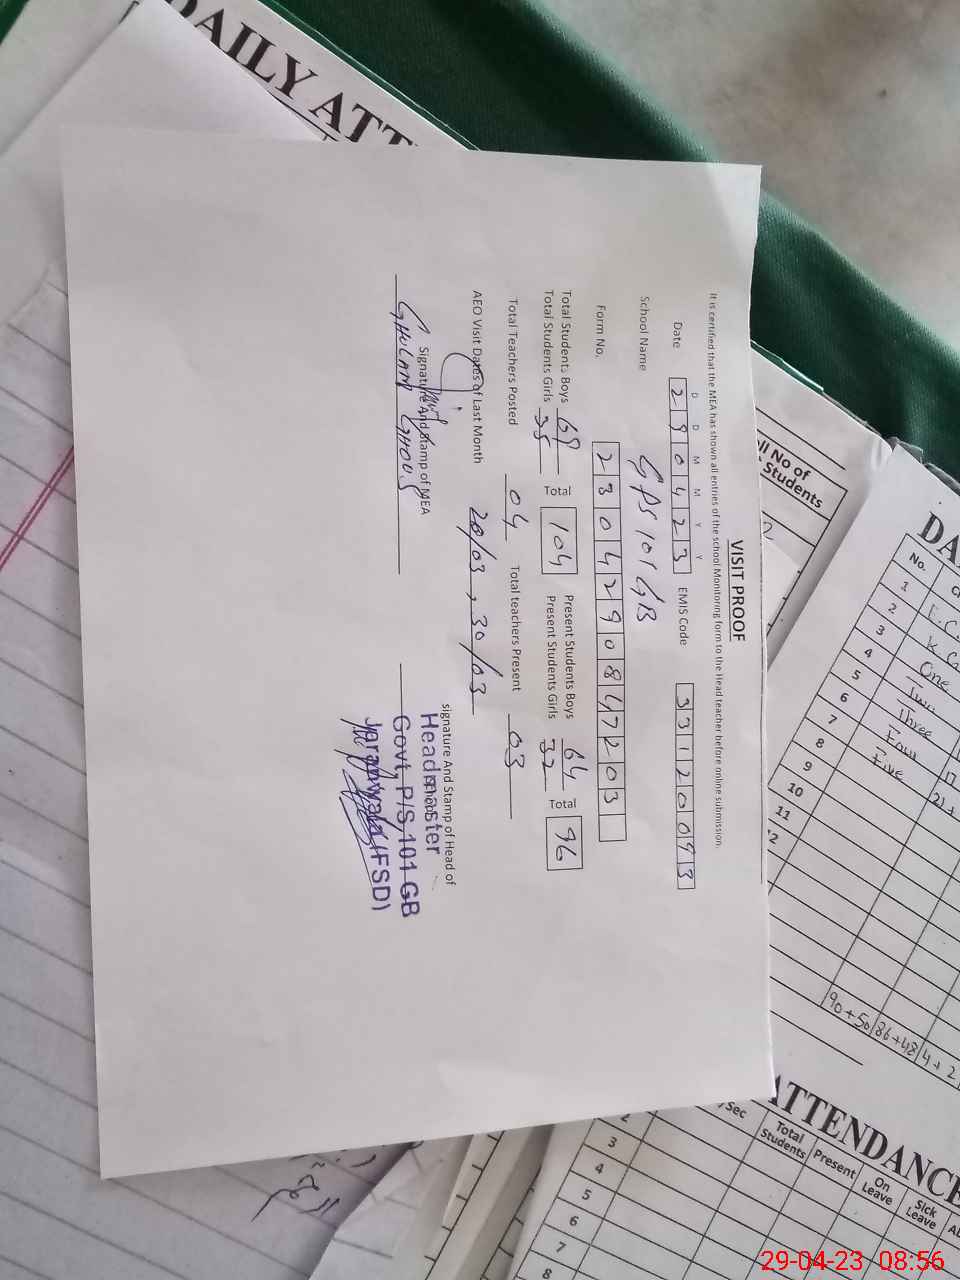 VISIT PROOF
It is certified that the MEA has shown all entries of the school Monitoring form to the Head teacher before online submission.
D D M M Y Y
Date 290423 EMIS Code 33120093
School Name GPS 101 GB
Form No. 2304290847203
Total Students Boys 69 Total 104 Present Students Boys 64 Total 96
Total Students Girls 35 Present Students Girls 32
Total Teachers Posted 04 Total teachers Present 03
AEO Visit Dates of Last Month 20/03, 30/03
Signature And Stamp of MEA
GHULAM GHOUS
signature And Stamp of Head of
School
Headmaster
Govt, P/S, 101 GB
Jaranwala (FSD)
DAILY ATT
ll No of
Students
DA
No.
1
2 K.
3 One
4 Two
5 Three
6 Four
7 Five
8
9
10
11
12
90+50 86+48 4+2
ATTENDANCE
/Sec Total Students Present On Leave Sick Leave
2
3
4
5
6
7
8
29-04-23 08:56